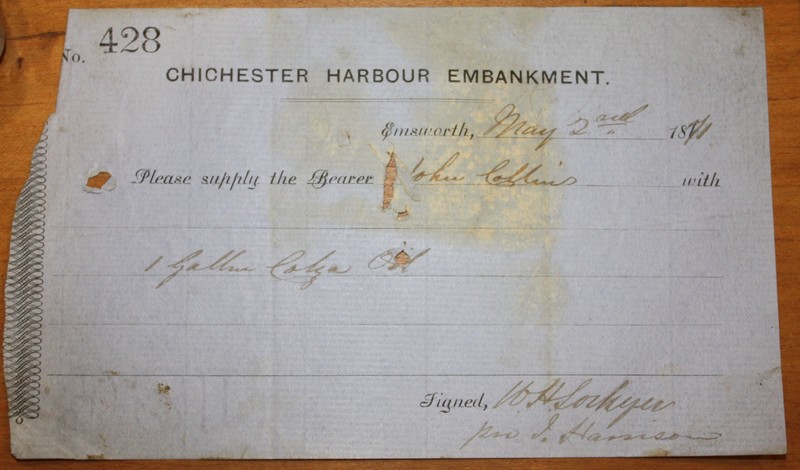 No. 428
CHICHESTER HARBOUR EMBANKMENT.
Emsworth, May 2nd 187
Please supply the Bearer John Collins with
1 Gallon Colza Oil
Signed, W H Lockyer
pro J. Harrison